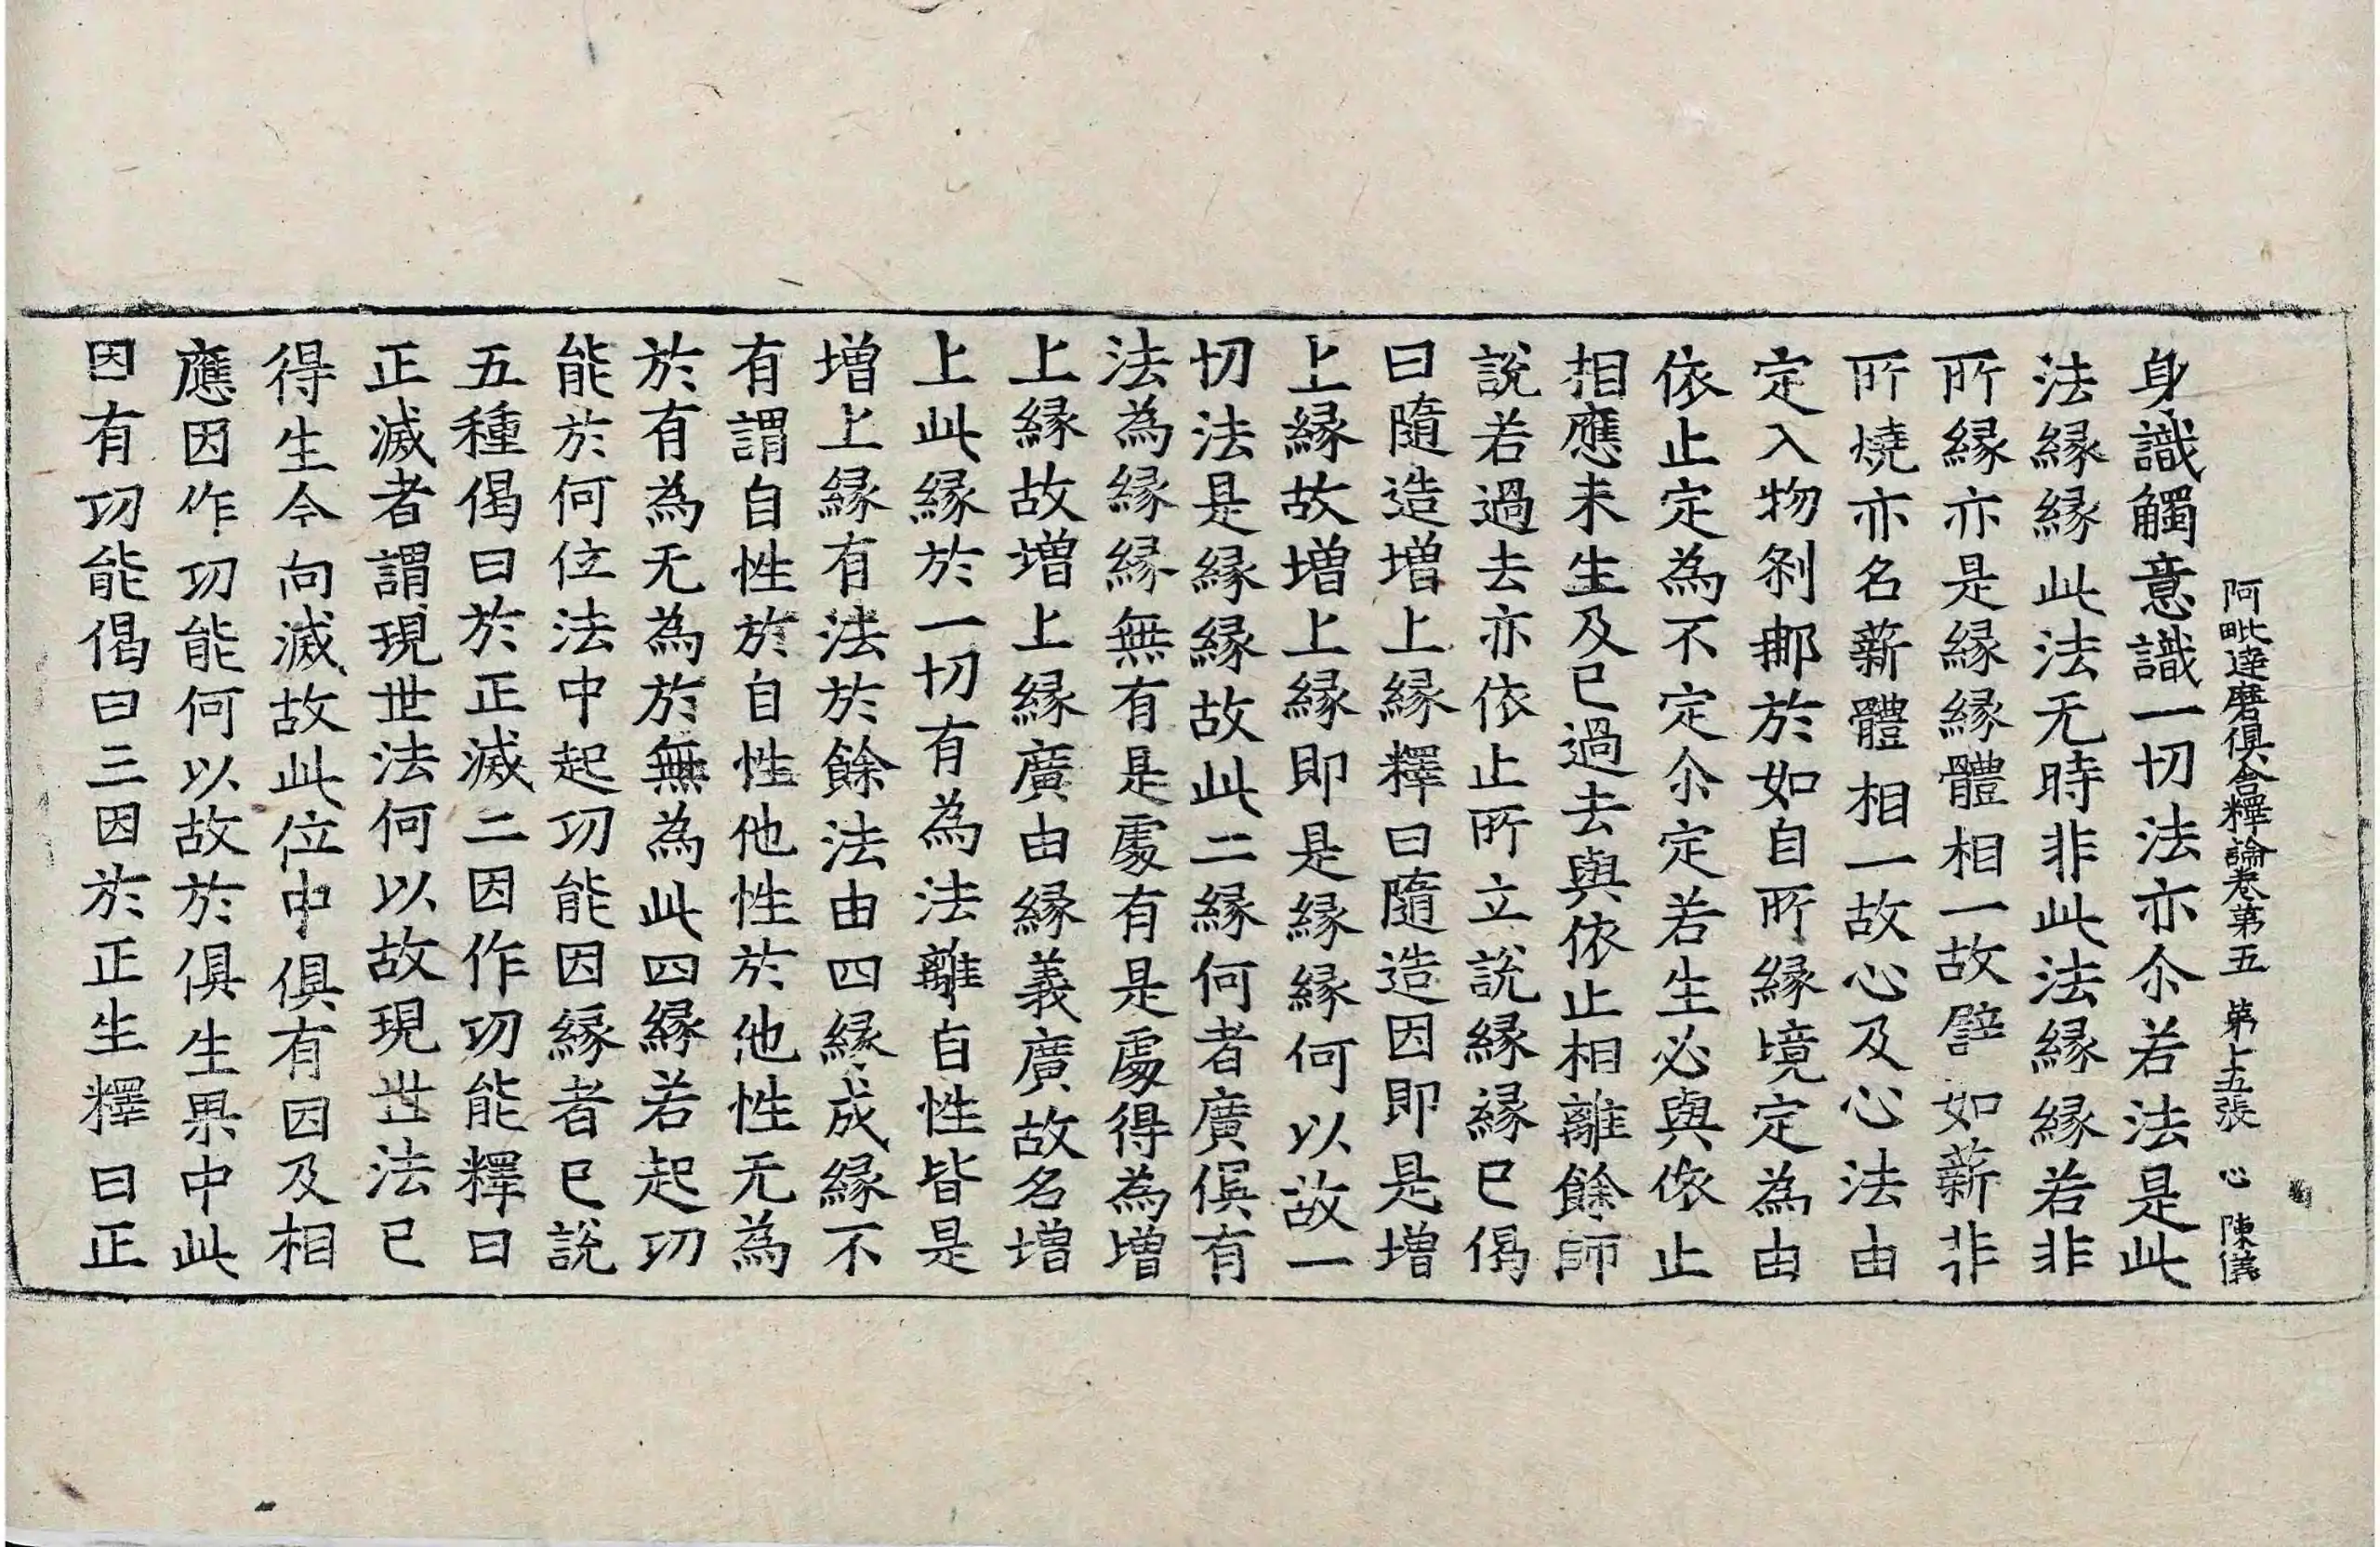 阿毗達磨俱舍釋論卷第五 第十五張 心 陳儀
身識觸意識一切法亦尒若法是此
法縁縁此法无時非此法縁縁若非
所縁亦是縁縁體相一故譬如薪非
所燒亦名薪體相一故心及心法由
定入物刹那於如自所縁境定為由
依止定為不定尒定若生必與依止
相應未生及已過去與依止相離餘師
說若過去亦依止所立說縁縁已偈
曰隨造增上縁釋曰隨造因即是增
上縁故增上縁即是縁縁何以故一
切法是縁縁故此二縁何者廣俱有
法為縁縁無有是處有是處得為增
上縁故增上縁廣由縁義廣故名增
上此縁於一切有為法離自性皆是
增上縁有法於餘法由四縁成縁不
有謂自性於自性他性於他性无為
於有為无為於無為此四縁若起功
能於何位法中起功能因縁者已說
五種偈曰於正滅二因作功能釋曰
正滅者謂現世法何以故現世法已
得生今向滅故此位中俱有因及相
應因作功能何以故於俱生果中此
因有功能偈曰三因於正生釋曰正